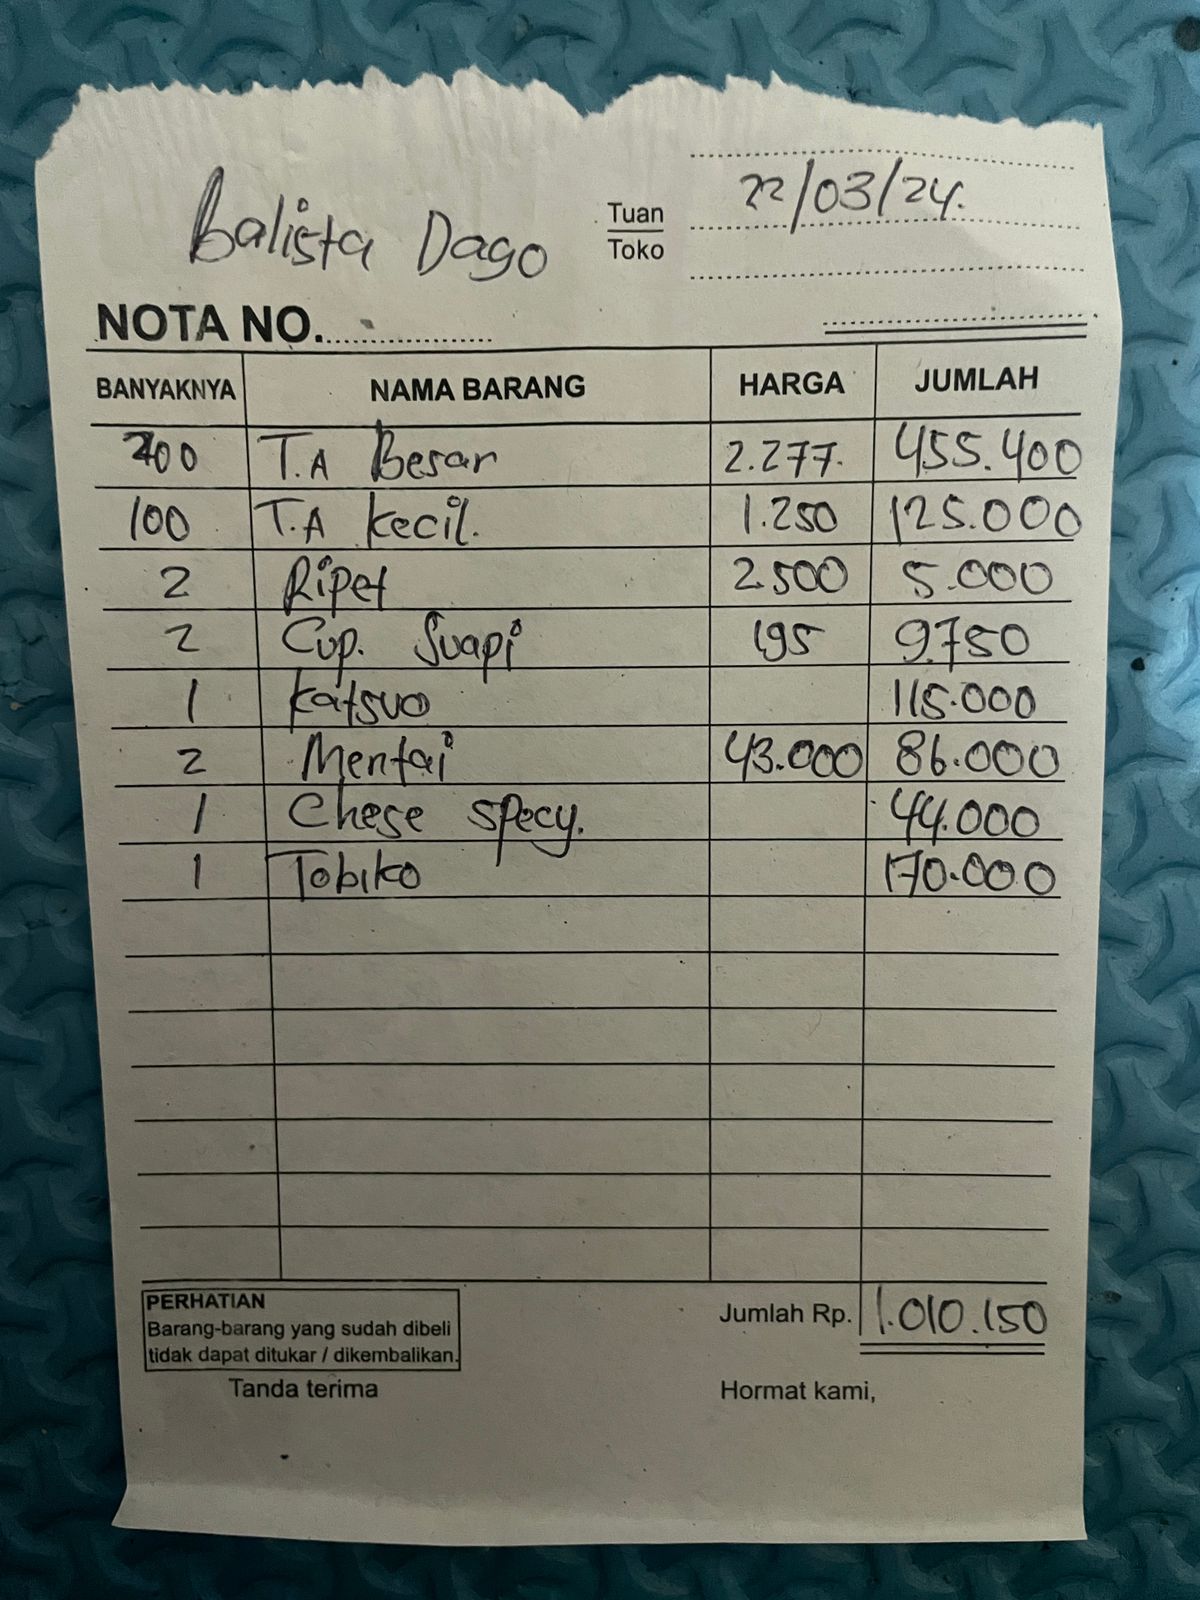 Balista Dago
Tuan
Toko
22/03/24.
NOTA NO.
BANYAKNYA NAMA BARANG HARGA JUMLAH
200 T.A Besar 2.277. 455.400
100 T.A kecil. 1.250 125.000
2 Ripet 2.500 5.000
2 Cup. Suapi 195 9.750
1 Katsuo 115.000
2 Mentai 43.000 86.000
1 Chese specy. 44.000
1 Tobiko 170.000
PERHATIAN
Barang-barang yang sudah dibeli
tidak dapat ditukar / dikembalikan.
Jumlah Rp. 1.010.150
Tanda terima Hormat kami,